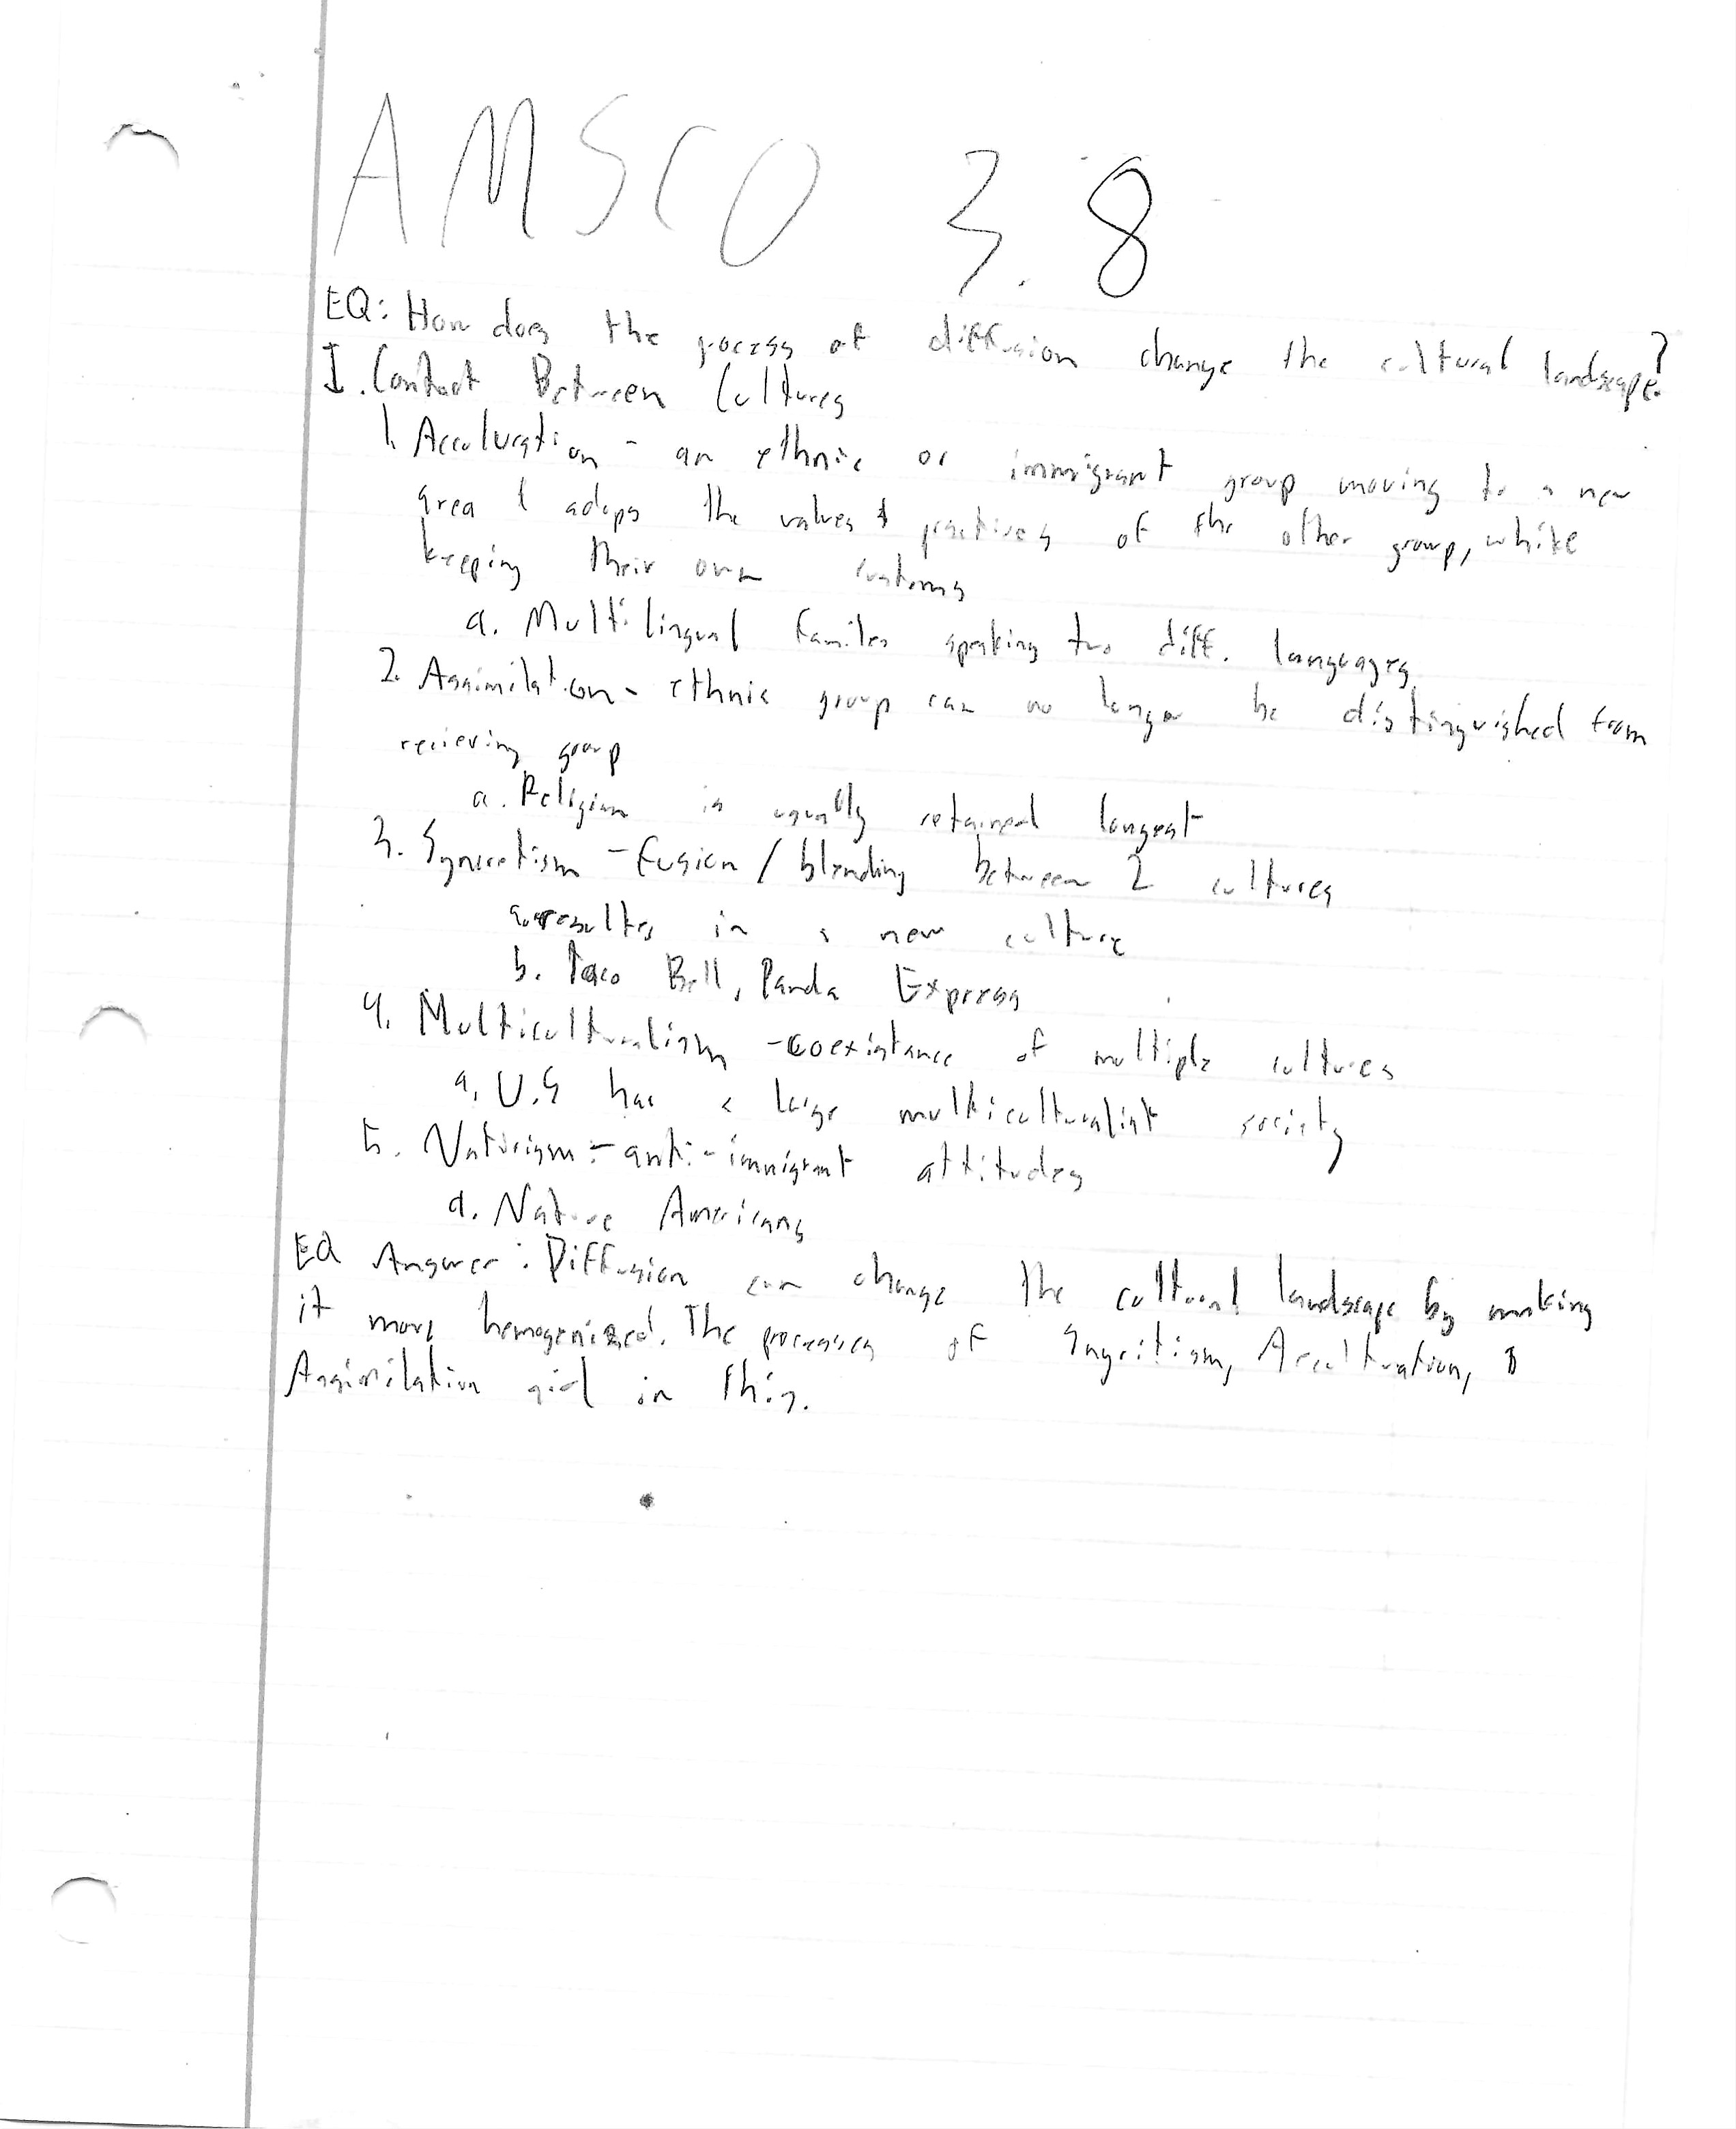 AMSCO 3.8
EQ: How does the process of diffusion change the cultural landscape?
I. Contact Between Cultures
1. Acculuration - an ethnic or immigrant group moving to a new
area & adops the values & practices of the other group, while
keeping their own customs
a. Multilingual familes speaking two diff. languages
2. Assimilation - ethnic group can no longer be distinguished from
recieving group
a. Religion is usually retained longest
3. Syncretism - fusion / blending between 2 cultures
a. results in a new culture
b. Taco Bell, Panda Express
4. Multiculturalism - coexistance of multiple cultures
a. U.S has a large multiculturalist society
5. Nativism - anti-immigrant attitudes
a. Native Americans
EQ Answer: Diffusion can change the cultural landscape by making
it more homogenized. The processes of Sycritism, Acculturation, &
Assimilation aid in this.